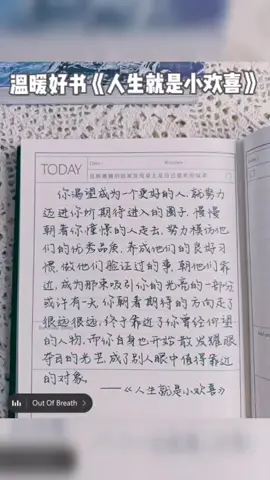 温暖好书《人生就是小欢喜》
TODAY
你渴望成为一个更好的人,就努力
迈进你所期待进入的圈子,慢慢
朝着你憧憬的人走去,努力模仿他
们的优秀品质,养成他们的良好习
惯,做他们验证过的事,朝他们靠
近,成为那束吸引你的光亮的一部分
或许有一天,你朝着期待的方向走了
很远很远,终于靠近了你曾经仰望
的人物,而你自身也开始散发耀眼
夺目的光芒,成了别人眼中值得靠近
的对象。
——《人生就是小欢喜》
Out Of Breath